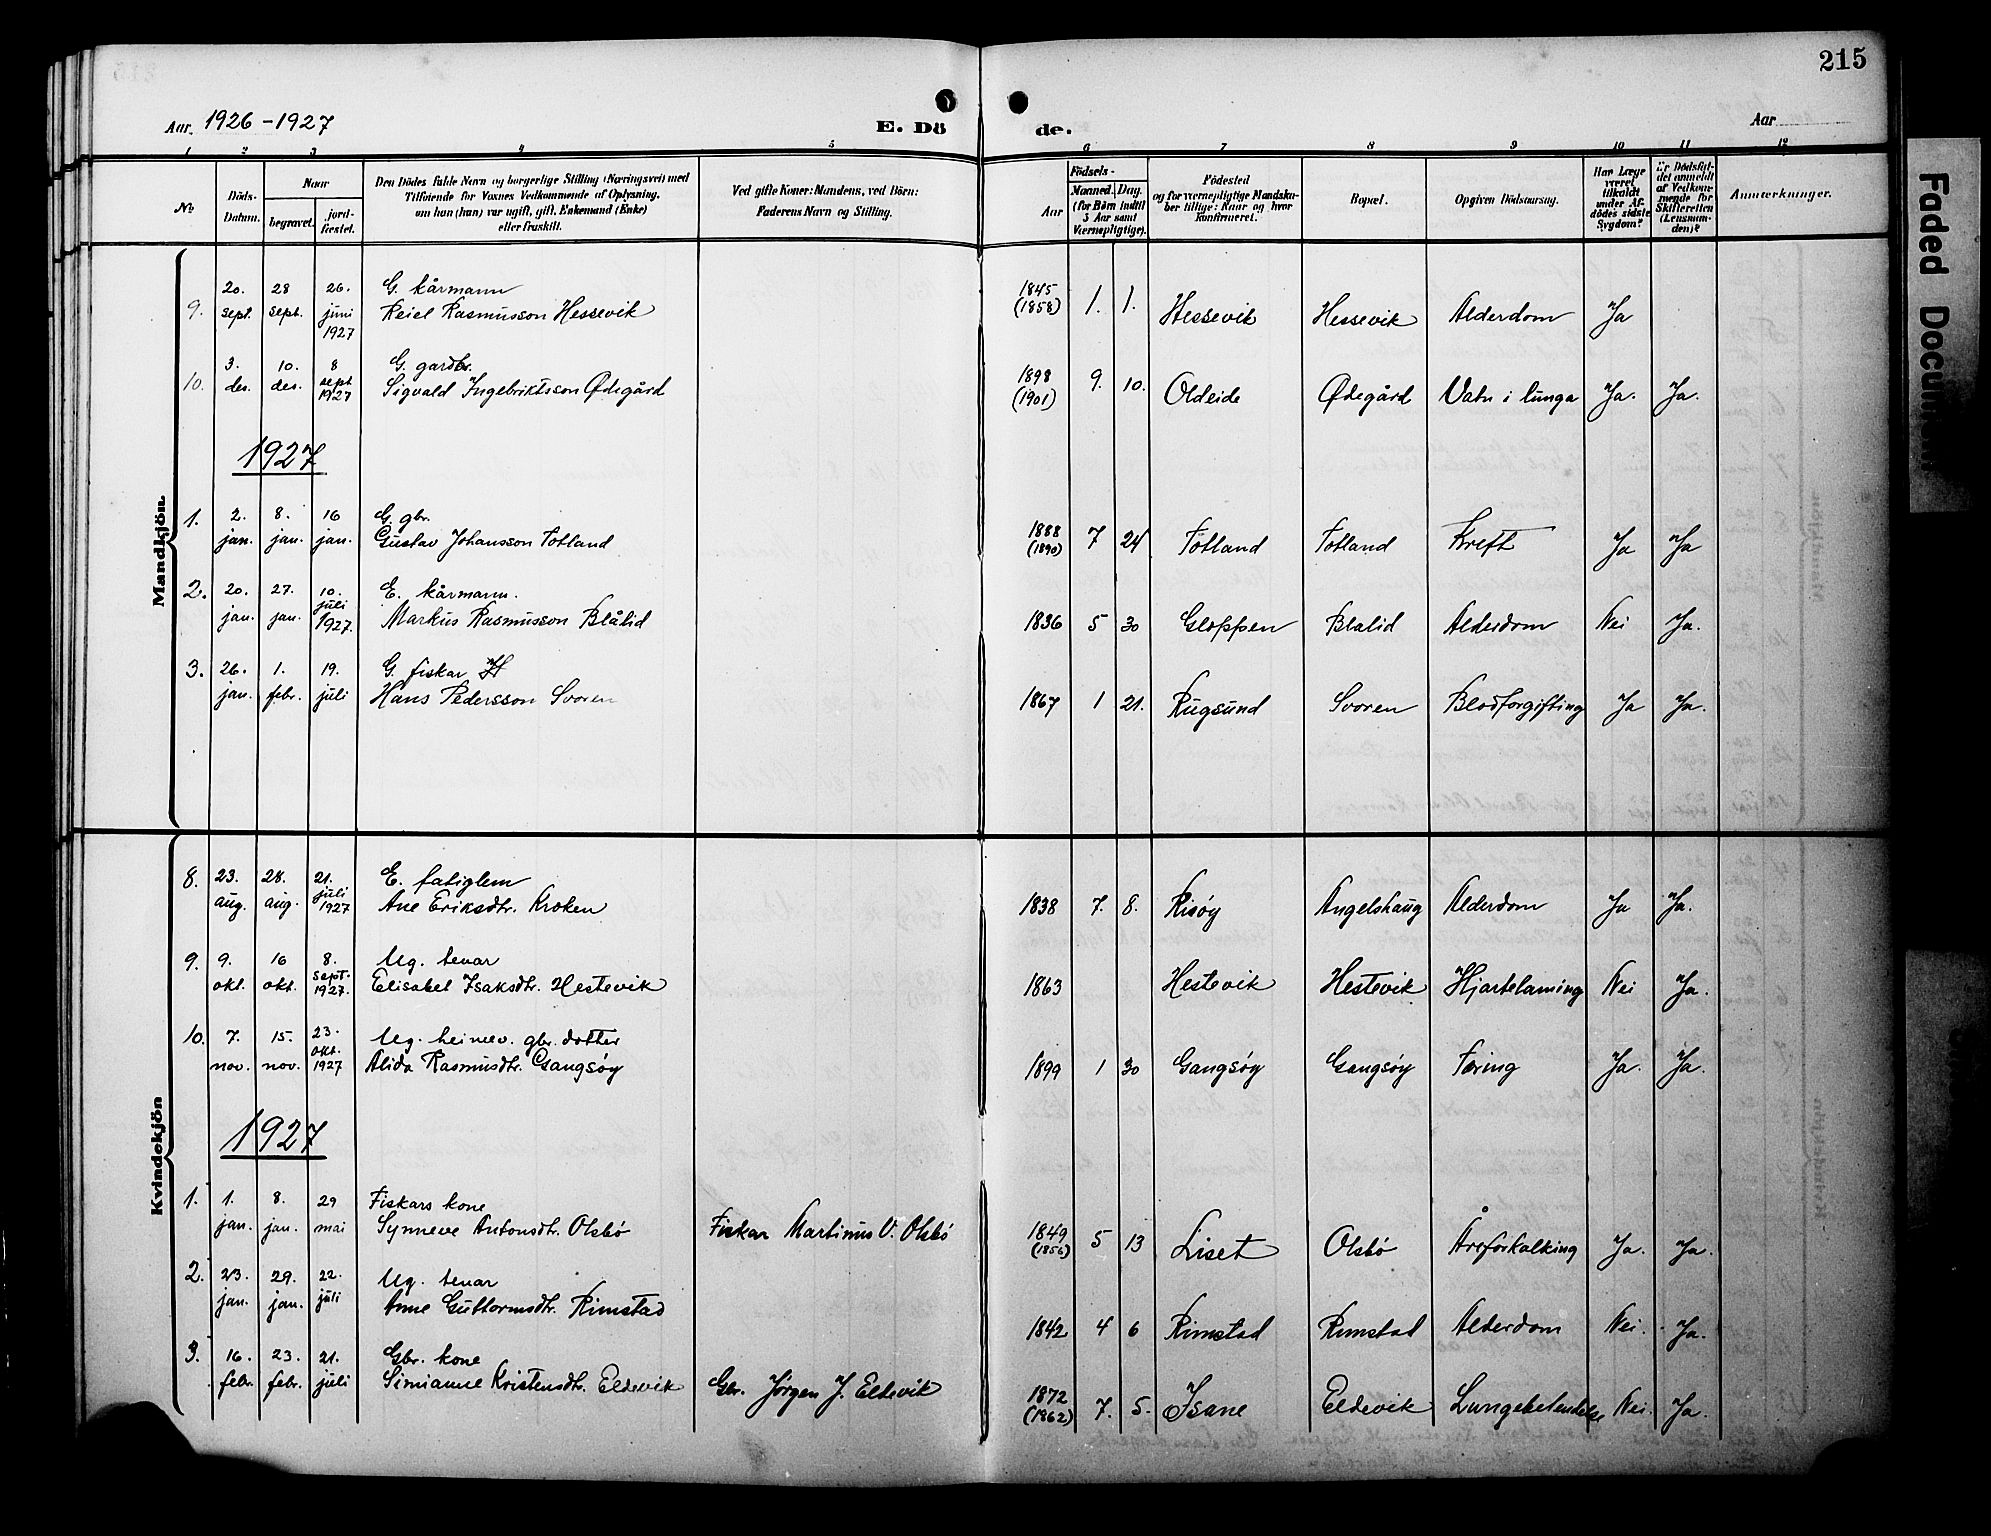 215
Aar. 1926-1927
E. Dö
de.
Aar
1 2 3 4 5 6 7 8 9 10 11 12
No
Döds-
Datum.
Naar
begravet.
jord-
fæstet.
Den Dödes fulde Navn og borgerlige Stilling (Næringsvei) med
Tilföiende for Voxnes Vedkommende af Oplysning,
om hun (han) var ugift, gift, Enkemand (Enke)
eller fraskilt.
Ved gifte Koner: Mandens, ved Börn:
Faderens Navn og Stilling.
Födsels-
Aar
Maaned. Dag.
(for Børn indtil
5 Aar samt
Værnepligtige).
Födested
og for værnepligtige Mandska-
ber tillige: Naar og hvor
konfirmeret.
Bopæl.
Opgiven Dödsaarsag.
Har Læge
været
tilkaldt
under Af-
dödes sidste
Sygdom?
Er Dödsfal-
det anmeldt
af Vedkom-
mende for
Skifteretten
(Lensman-
den)?
Anmærkninger.
Mandkjön.
20. 28 26. G. kårmann 1845
9. sept. sept. juni Reiel Rasmusson Hessevik (1858) 1. 1. Hessevik Hessevik Alderdom Ja
1927
3. 10. 8 G. gardbr. 1898
10. des. des. sept Sigvald Ingebriktsson Ødegård (1901) 9. 10. Oldeide Ødegård Vatn i lunga Ja. Ja.
1927
1927
1. 2. 8. 16 G. gbr. 1888
jan. jan. jan. Gustav Johansson Totland (1890) 7 24 Totland Totland Kreft Ja Ja
2. 20. 27. 10. E. kårmann.
jan. jan. juli 1927. Markus Rasmusson Blålid 1836 5 30 Gloppen Blålid Alderdom Nei Ja.
3. 26. 1. 19. G. fiskar
jan. febr. juli Hans Pedersson Svoren 1867 1 21. Rugsund Svoren Blodforgifting Ja Ja.
Kvindekjön
8. 23. 28. 21. E. fatiglem
aug. aug. juli 1927 Ane Eriksdtr. Kroken 1838 7. 8. Risöy Angelshaug Alderdom Ja Ja.
9. 9. 16 8. Ug. tenar
okt. okt. sept. 1927. Elisabet Isaksdtr. Hestevik 1863 Hestevik Hestevik Hjartelaming Nei Ja.
10. 7. 15. 23. Ug. heimev. gbr. dotter
nov. nov. okt. 1927 Alida Rasmusdtr. Gangsöy 1899 1 30 Gangsöy Gangsöy Tæring Ja. Ja.
1927
1. 1. 8. 29 Fiskars kone
jan. jan. mai Synneve Antonsdtr. Olsbö Fiskar Martinus V. Olsbö 1849 (1856) 5 13 Liset Olsbö Åreforkalking Ja. Ja.
2. 23. 29. 22. Ug. tenar
jan. jan. juli Anne Guttormsdtr. Rimstad 1842 4 6 Rimstad Rimstad Alderdom Nei. Ja.
3. 16. 23. 21. Gbr. kone
febr. febr. juli Simianne Kristensdtr. Eldevik Gbr. Jörgen J. Eldevik 1872 (1862) 7. 5. Isane Eldevik Lungebetendelse Nei. Ja.
Faded Document